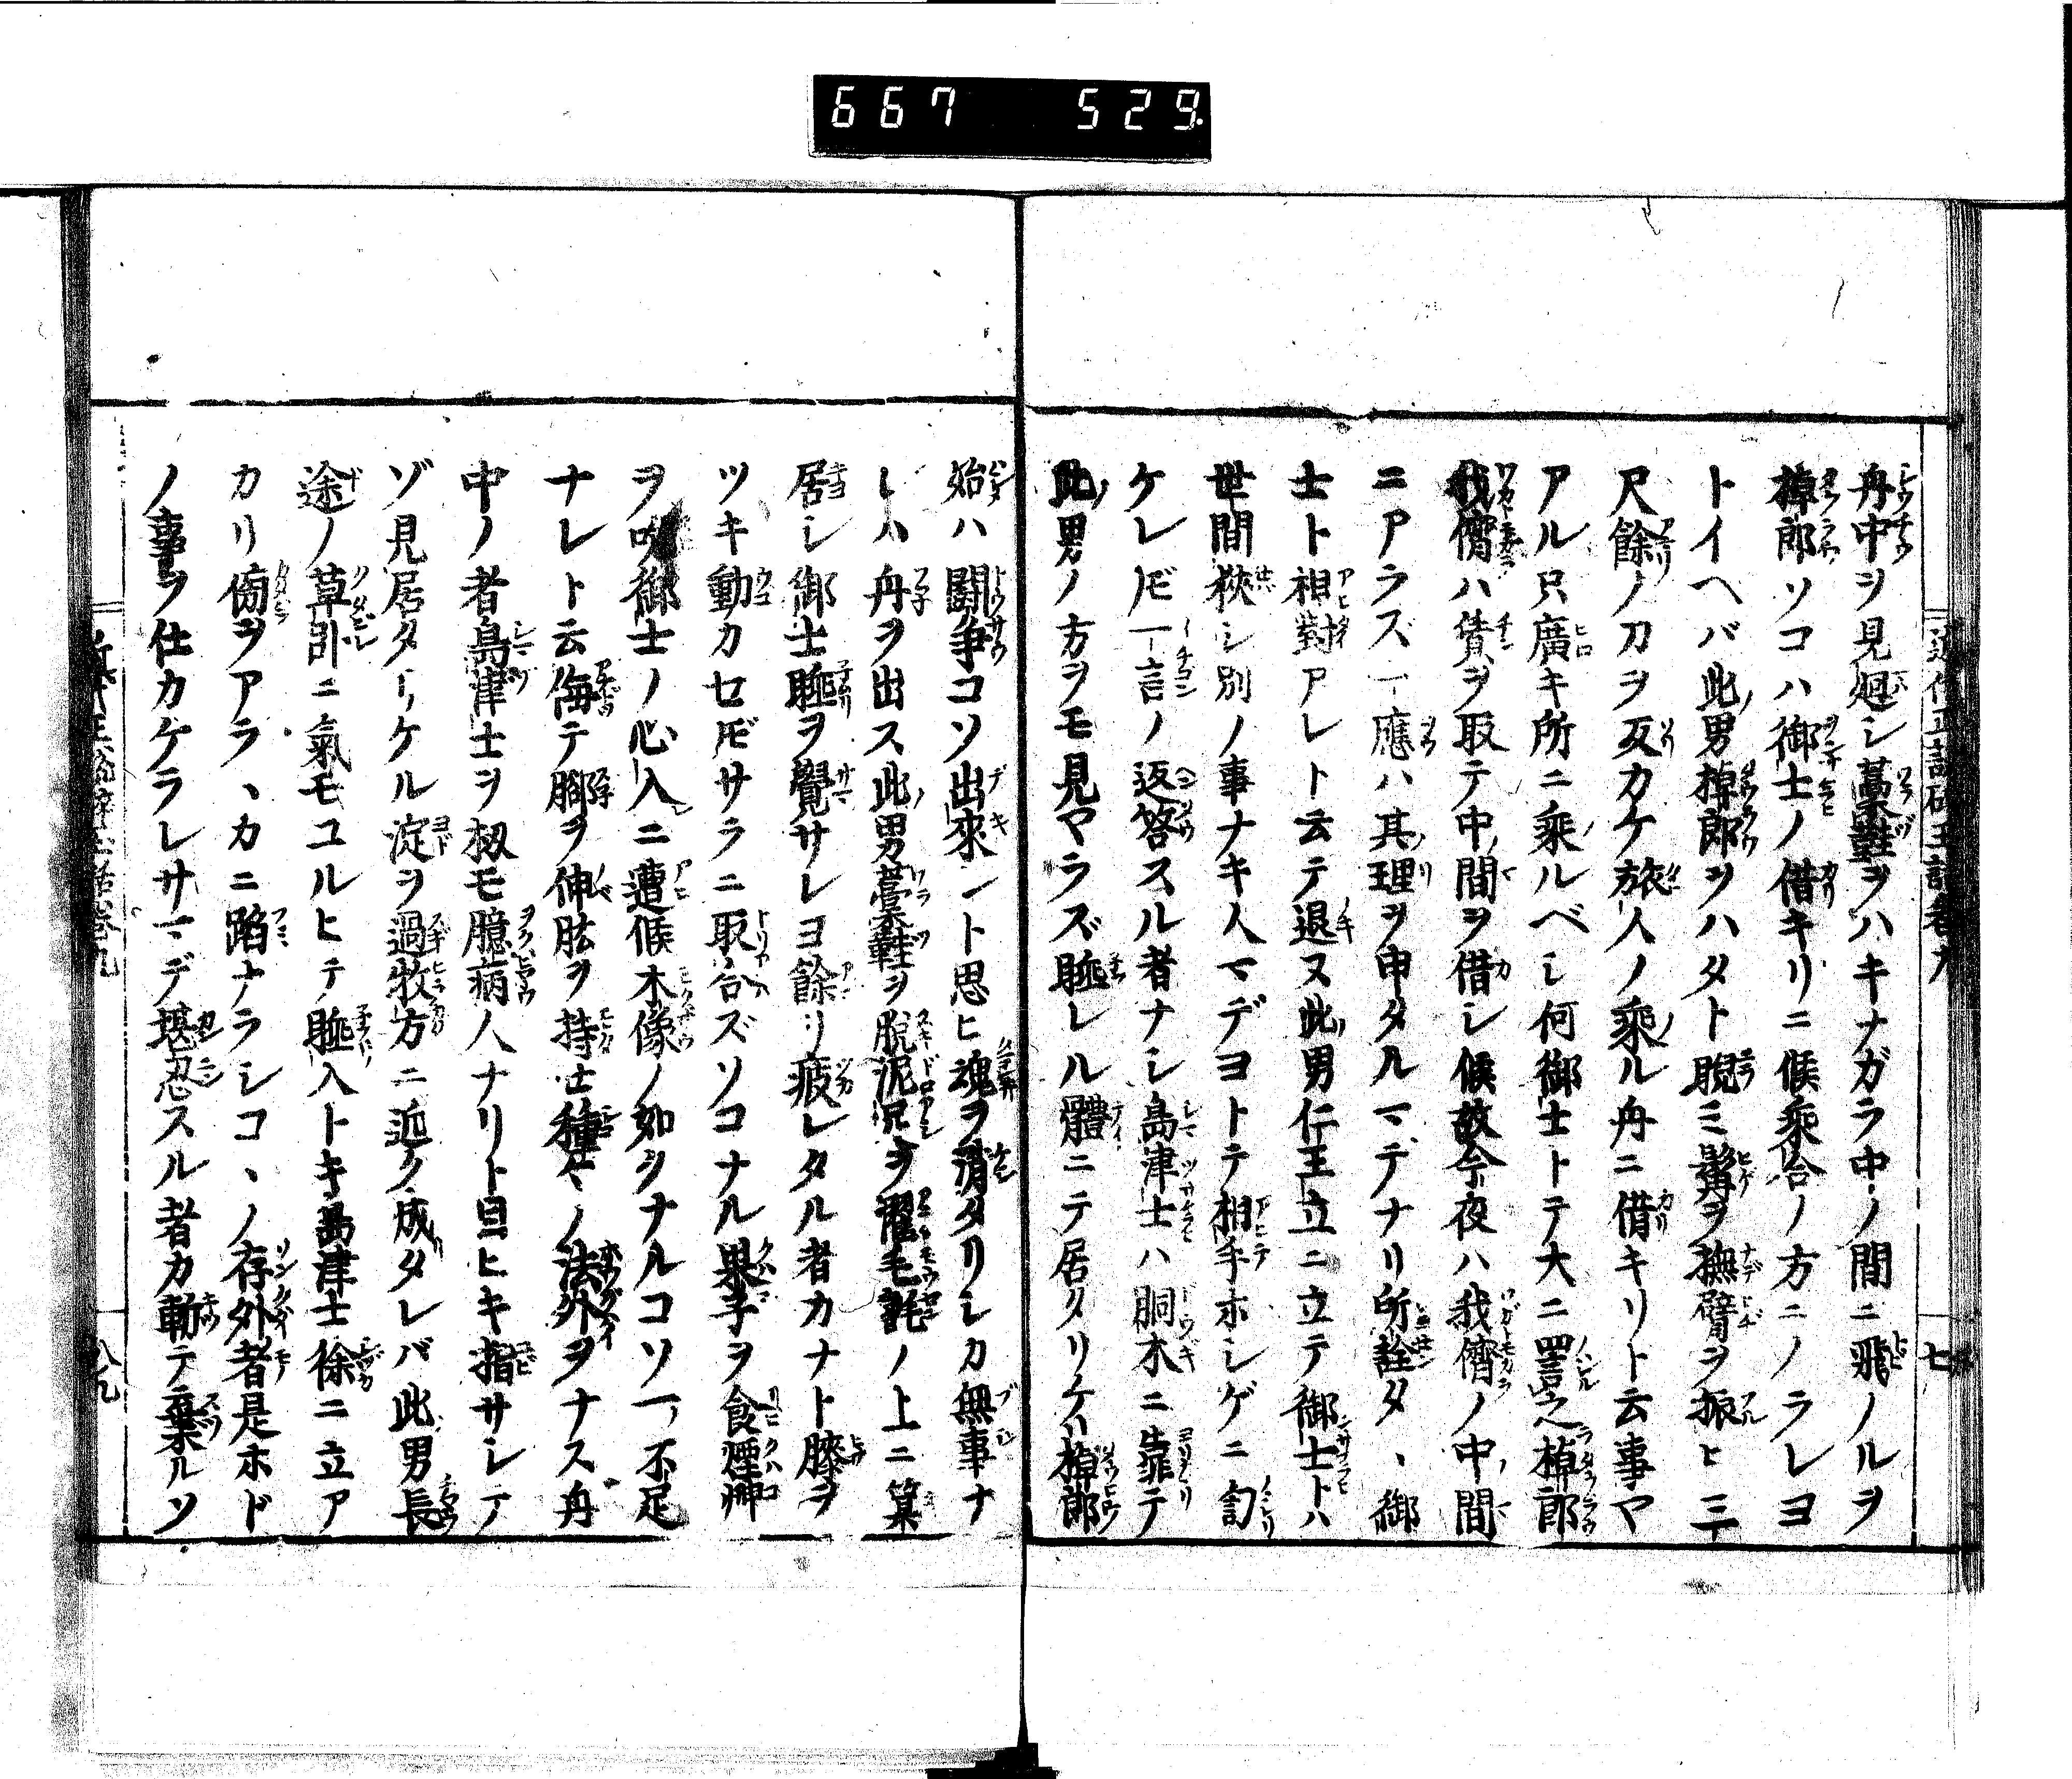 667 529
舟中ヲ見廻シ藁鞋ヲハキナガラ中ノ間ニ飛ノルヲ
棹郎ソコハ御士ノ借キリニ候乘合ノ方ニノラレヨ
トイヘバ此男棹郎ヲハタト睨ミ髯ヲ撫臂ヲ振ヒ三
尺餘ノ刀ヲ反カケ旅人ノ乘ル舟ニ借キリト云事マ
アル只廣キ所ニ乘ルベシ何御士トテ大ニ詈之棹郎
我儕ハ賃ヲ取テ中間ヲ借シ候故今夜ハ我儕ノ中間
ニアラズ一應ハ其理ヲ申タルマデナリ所詮タヽ御
士ト相對アレト云テ退ヌ此男仁王立ニ立テ御士トハ
世間狹シ別ノ事ナキ人マデヨトテ相手ホシゲニ訇
ケレ𪜈一言ノ返答スル者ナシ島津士ハ胴木ニ靠テ
此男ノ方ヲモ見マラズ睡レル體ニテ居タリケル棹郎
始ハ鬪争コソ出來ント思ヒ魂ヲ消タリシカ無事ナ
レハ舟ヲ出ス此男藁鞋ヲ脫泥足ヲ濯毛氈ノ上ニ箕
居シ御士睡ヲ覺サレヨ餘リ疲レタル者カナト膝ヲ
ツキ動カセ𪜈サラニ取合ズソコナル果子ヲ食煙艸
ヲ吹御士ノ心入ニ遭候木像ノ如クナルコソ一ノ不足
ナレト云侮テ腳ヲ伸肱ヲ持セ種々ノ法外ヲナス舟
中ノ者島津士ヲ扨モ臆病人ナリト目ヒキ指サシテ
ゾ見居タリケル淀ヲ過牧方ニ近ク成タレバ此男長
途ノ草臥ニ氣モユルヒテ睡入トキ島津士徐ニ立ア
カリ傍ヲアラヽカニ蹈ナラシコヽノ存外者是ホド
ノ事ヲ仕カケラレサマデ堪忍スル者カ斬テ棄ルソ